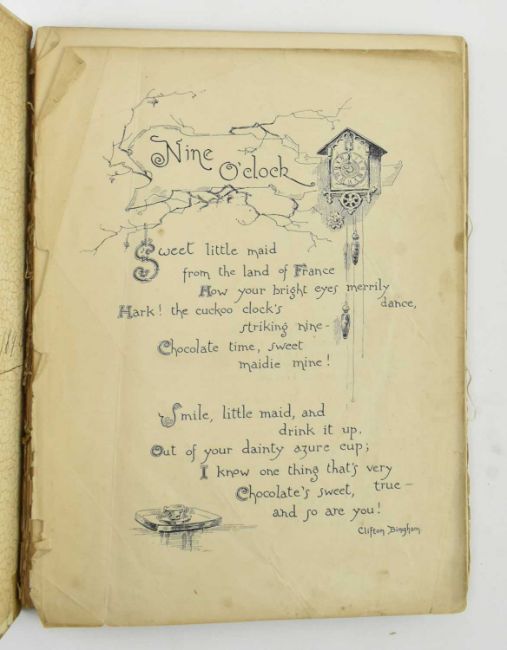 Nine
O'clock
Sweet little maid
from the land of France
How your bright eyes merrily
dance,
Hark! the cuckoo clock's
striking nine-
Chocolate time, sweet
maidie mine!
Smile, little maid, and
drink it up,
Out of your dainty azure cup;
I know one thing that's very
true-
Chocolate's sweet,
and so are you!
Clifton Bingham